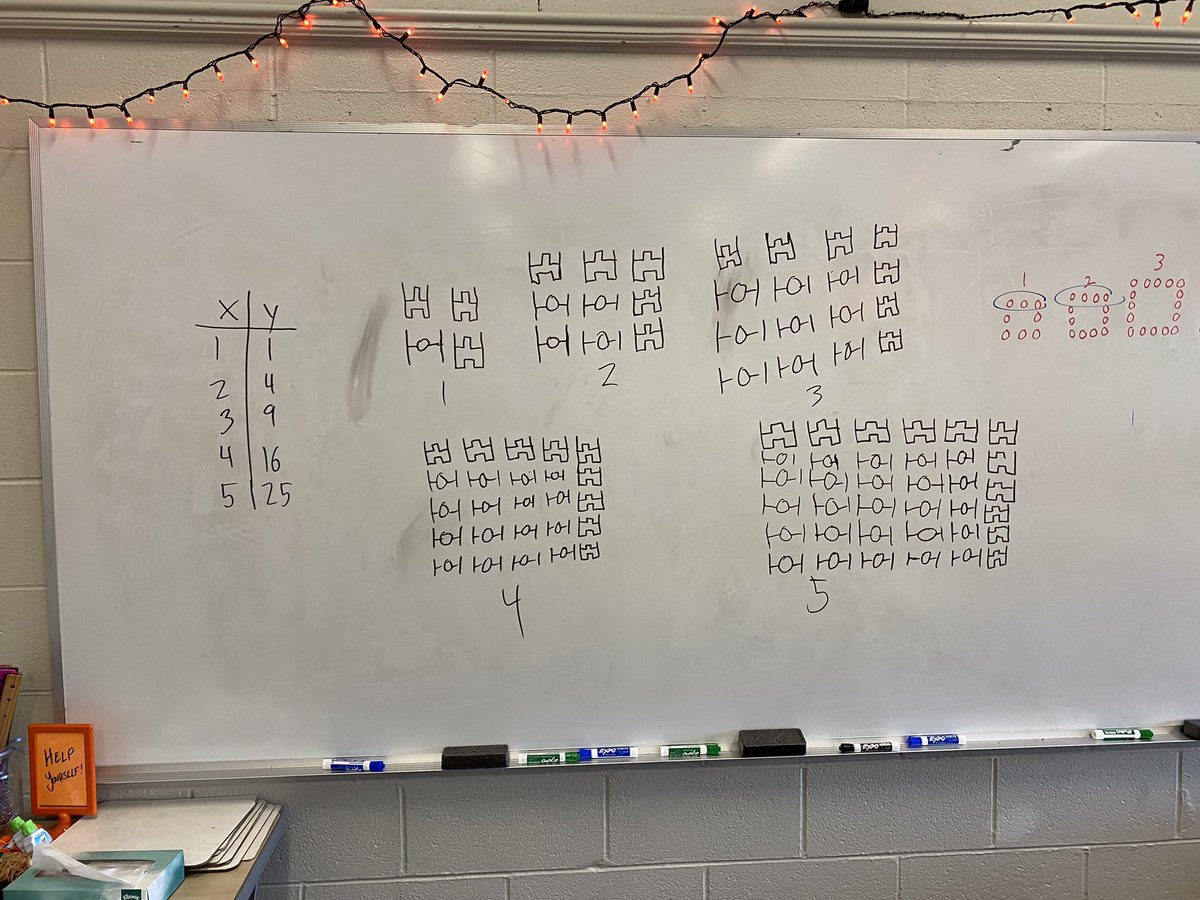 X Y
1 1
2 4
3 9
4 16
5 25
1
2
3
4
5
1
2
3
HELP
YOURSELF!
EXPO
Kleenex